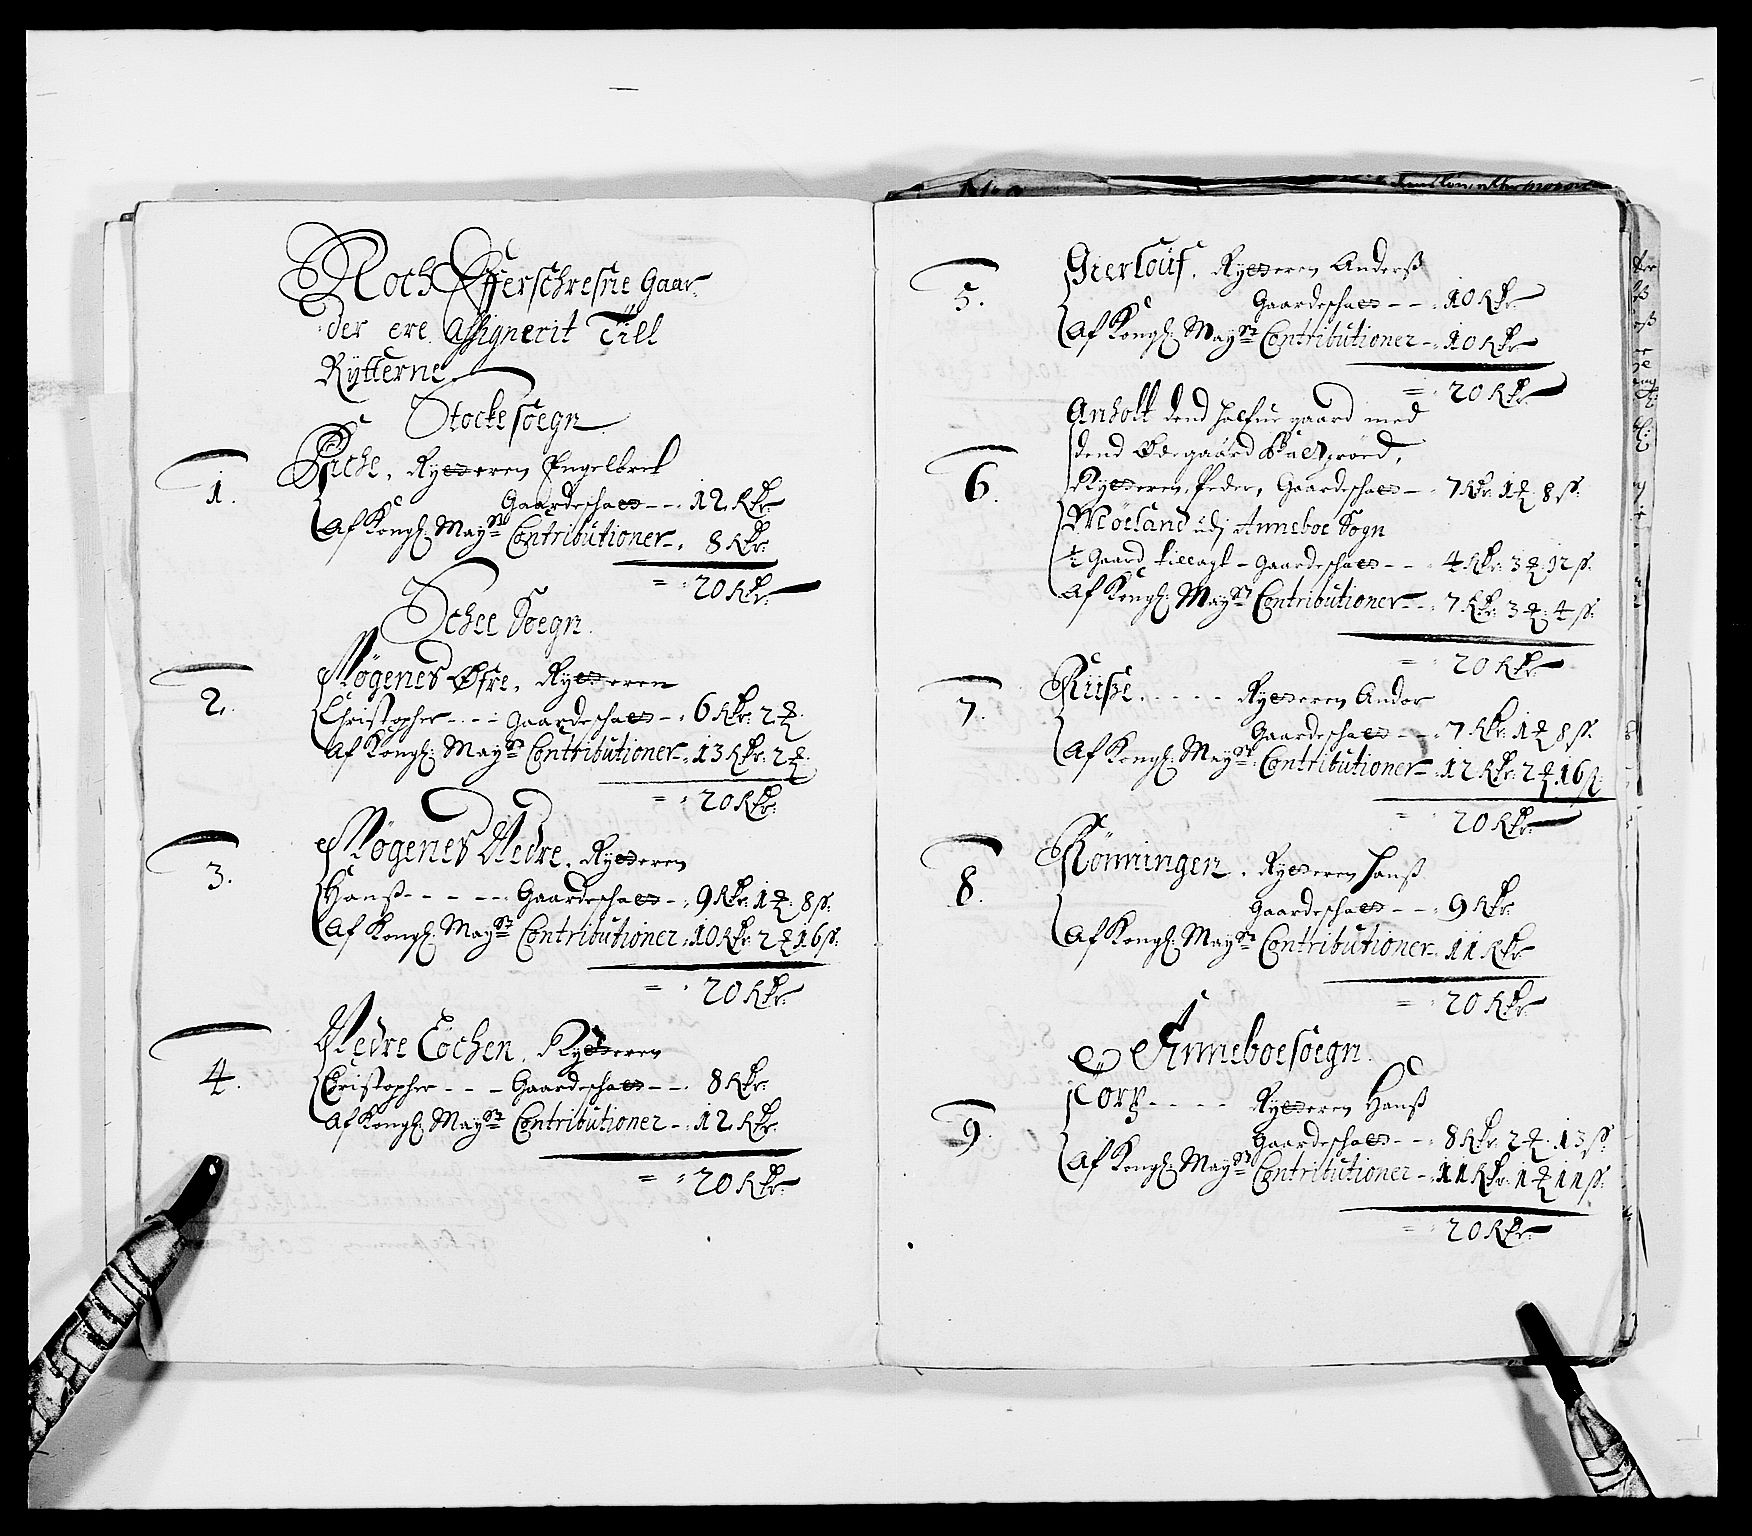 Noch Efferschrefne Gaar-
der ere Assignerit Till
Rytterne
Stockesoegn
1. Riche, Rytteren Engelbret
Gaardeschatt -- 12 Rdr
Af Kongl: Mayst Contributioner - 8 Rdr:
= : 20 Rdr:
Schee Soegn
2. Møgenes Øfre, Rytteren
Christopher --- Gaardeschatt - : 6 Rdr: 2 ꝝ:
Af Kongl: Mayst Contributioner - : 13 Rdr: 2 ꝝ:
= : 20 Rdr:
3. Møgenes Nedre, Rytteren
Hanß ---- Gaardeschatt - : 9 Rdr: 1 ꝝ: 8 ß:
Af Kongl: Mayst Contributioner : 10 Rdr: 2 ꝝ 16 ß:
= : 20 Rdr:
4. Nedre Løchen, Rytteren
Christopher --- Gaardeschatt -- : 8 Rdr:
Af Kongl: Mayst Contributioner - : 12 Rdr:
= : 20 Rdr:
5. Gierløuf, Rytteren Anderß
Gaardeschatt -- : 10 Rdr
Af Kongl: Mayst Contributioner - : 10 Rdr
= : 20 Rdr:
Anholt dend halfue gaard med
dend Ødegaard
6. Rytteren, Peder, Gaardeschatt - : 7 Rdr: 1 ꝝ: 8 ß:
Møeland udj Anneboe Sogn
½ Gaard tillagt - Gaardeschatt -- : 4 Rdr: 3 ꝝ: 12 ß:
Af Kongl: Mayst Contributioner -- : 7 Rdr: 3 ꝝ: 4 ß:
= : 20 Rdr:
7. Riiße, ---- Rytteren Andor
Gaardeschatt -- : 7 Rdr: 1 ꝝ 8 ß:
Af Kongl: Mayst: Contributioner - : 12 Rdr: 2 ꝝ 16 ß:
= : 20 Rdr:
8. Rønningen, Rytteren Hanß
Gaardeschatt -- : 9 Rdr:
Af Kongl: Mayst Contributioner - : 11 Rdr
= : 20 Rdr:
Anneboesoegn
9. Torp ---- Rytteren Hanß
Gaardeschatt -- : 8 Rdr: 2 ꝝ: 13 ß:
Af Kongl: Mayst Contributioner - : 11 Rdr: 1 ꝝ 11 ß:
= : 20 Rdr: